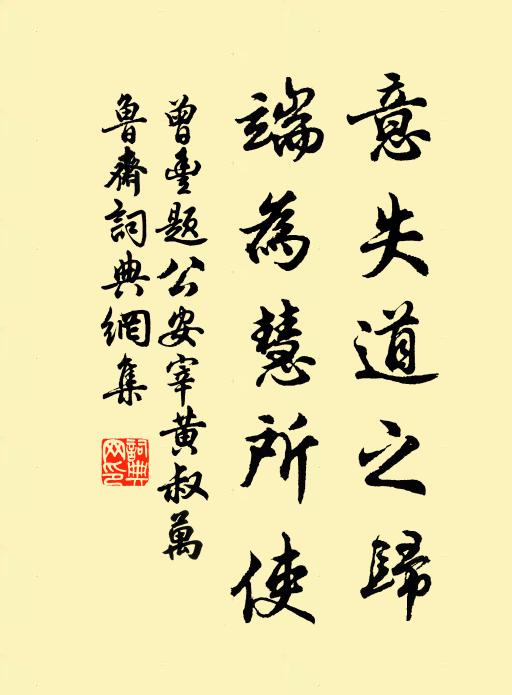 意失道之歸
端為慧所使
曾豐題公安宰黃叔萬
魯齋詞典網集
詞典網印